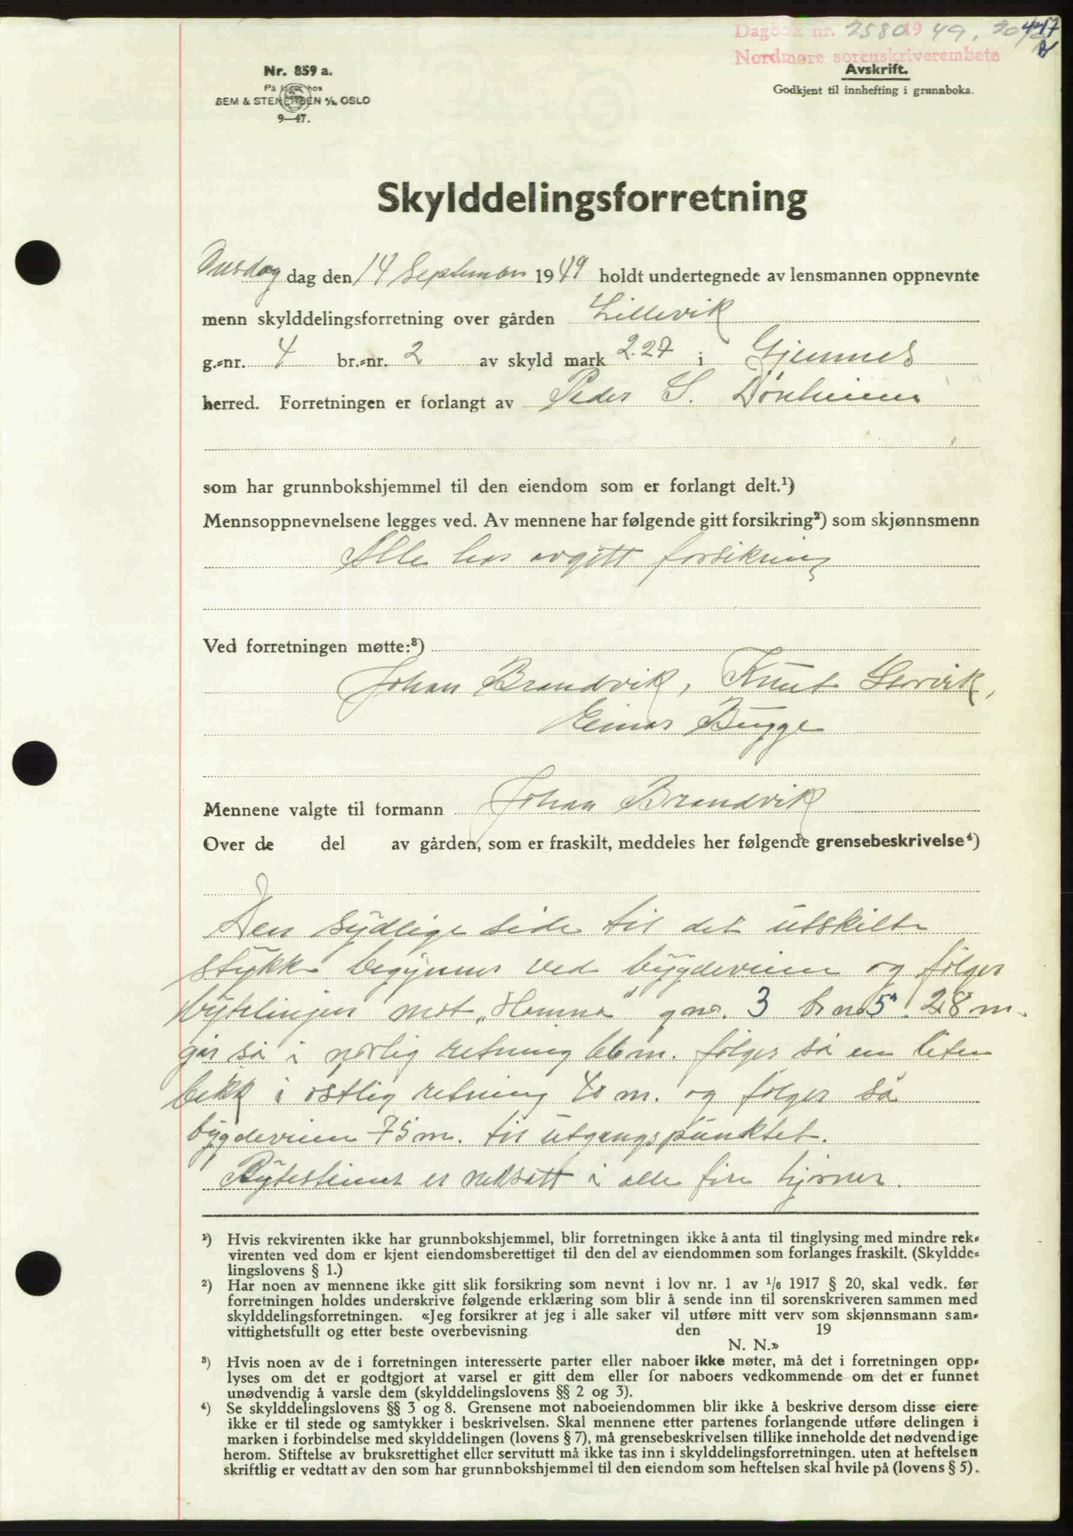 Dagbok nr. 2580 1949. 20/9 447
Nordmøre sorenskriverembete B
Nr. 859 a.
På lager hos
SEM & STENERSEN A/S, OSLO
9—47.
Avskrift.
Godkjent til innhefting i grunnboka.
Skylddelingsforretning
Onsdag dag den 14 September 1949 holdt undertegnede av lensmannen oppnevnte
menn skylddelingsforretning over gården Lillevik
g.-nr. 4 br.-nr. 2 av skyld mark 2.27 i Gjemnes
herred. Forretningen er forlangt av Peder S. Dønheim
som har grunnbokshjemmel til den eiendom som er forlangt delt.¹)
Mennsoppnevnelsene legges ved. Av mennene har følgende gitt forsikring²) som skjønnsmenn
Alle har avgitt forsikring
Ved forretningen møtte:³)
Johan Brandvik, Knut Storvik,
Einar Bugge
Mennene valgte til formann Johan Brandvik
Over de del av gården, som er fraskilt, meddeles her følgende grensebeskrivelse⁴)
Den sydlige side til det utskilte
stykke begynner ved bygdeveien og følger
bytelinjen mot „Hamna" gnr. 3 brn 5. 28 m.
går så i nørlig retning 66 m. følger så en liten
bekk i østlig retning 40 m. og følger så
bygdeveien 75 m. til utgangspunktet.
Bytesteiner er nedsatt i alle fire hjørner.
¹) Hvis rekvirenten ikke har grunnbokshjemmel, blir forretningen ikke å anta til tinglysing med mindre rek-
virenten ved dom er kjent eiendomsberettiget til den del av eiendommen som forlanges fraskilt. (Skyldde-
lingslovens § 1.)
²) Har noen av mennene ikke gitt slik forsikring som nevnt i lov nr. 1 av 1/6 1917 § 20, skal vedk. før
forretningen holdes underskrive følgende erklæring som blir å sende inn til sorenskriveren sammen med
skylddelingsforretningen. «Jeg forsikrer at jeg i alle saker vil utføre mitt verv som skjønnsmann sam-
vittighetsfullt og etter beste overbevisning den 19
N. N.»
³) Hvis noen av de i forretningen interesserte parter eller naboer ikke møter, må det i forretningen opp-
lyses om det er godtgjort at varsel er gitt dem eller for naboers vedkommende om det er funnet
unødvendig å varsle dem (skylddelingslovens §§ 2 og 3).
⁴) Se skylddelingslovens §§ 3 og 8. Grensene mot naboeiendommen blir ikke å beskrive dersom disse eiere
ikke er til stede og samtykker i beskrivelsen. Skal mennene etter partenes forlangende utføre delingen i
marken i forbindelse med skylddelingen (lovens § 7), må grensebeskrivelsen tillike inneholde det nødvendige
herom. Stiftelse av bruksrettighet eller servitutt må ikke tas inn i skylddelingsforretningen. uten at heftelsen
skriftlig er vedtatt av den som har grunnbokshjemmel til den eiendom som heftelsen skal hvile på (lovens § 5).